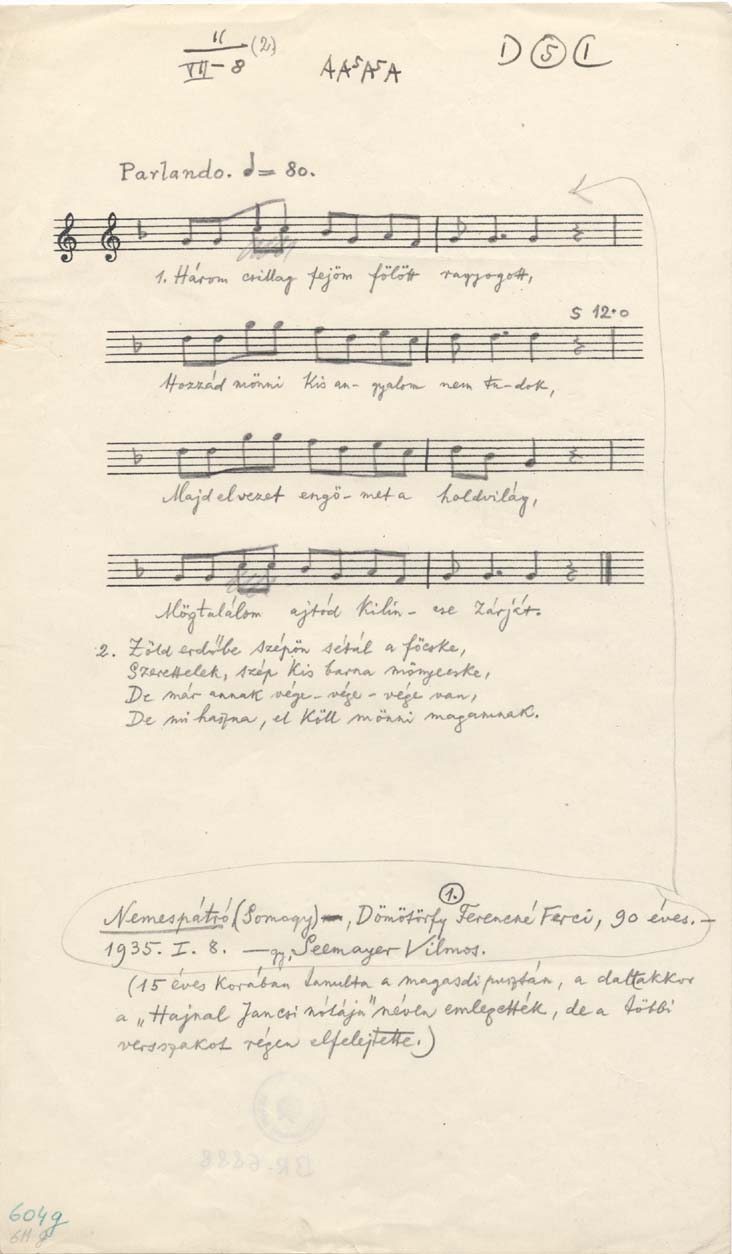 11 (2)
VII-8
A A⁵ A⁵ A
D ⑤ I
Parlando. = 80.
1. Három csillag fejöm fölött ragyogott,
S 12·0
Hozzád mönni Kis an- gyalom nem tu-dok,
Majd elvezet engö- met a holdvilág,
Mögtalálom ajtód Kilin- cse zárját.
2. Zöld erdőbe szépön sétál a föcske,
Szerettelek, szép kis barna mönyecske,
De már annak vége-vége-vége van,
De mi haszna, el Köll mönni magamnak.
1.
Nemespátró (Somogy), Dömötörfy Ferencné Ferci, 90 éves.-
1935. I. 8. — gy. Seemayer Vilmos.
(15 éves Korában tanulta a magasdi pusztán, a dalt akkor
a „Hajnal Jancsi nótája" néven emlegették, de a többi
versszakot régen elfelejtette.)
BR-6888
604g
611 g